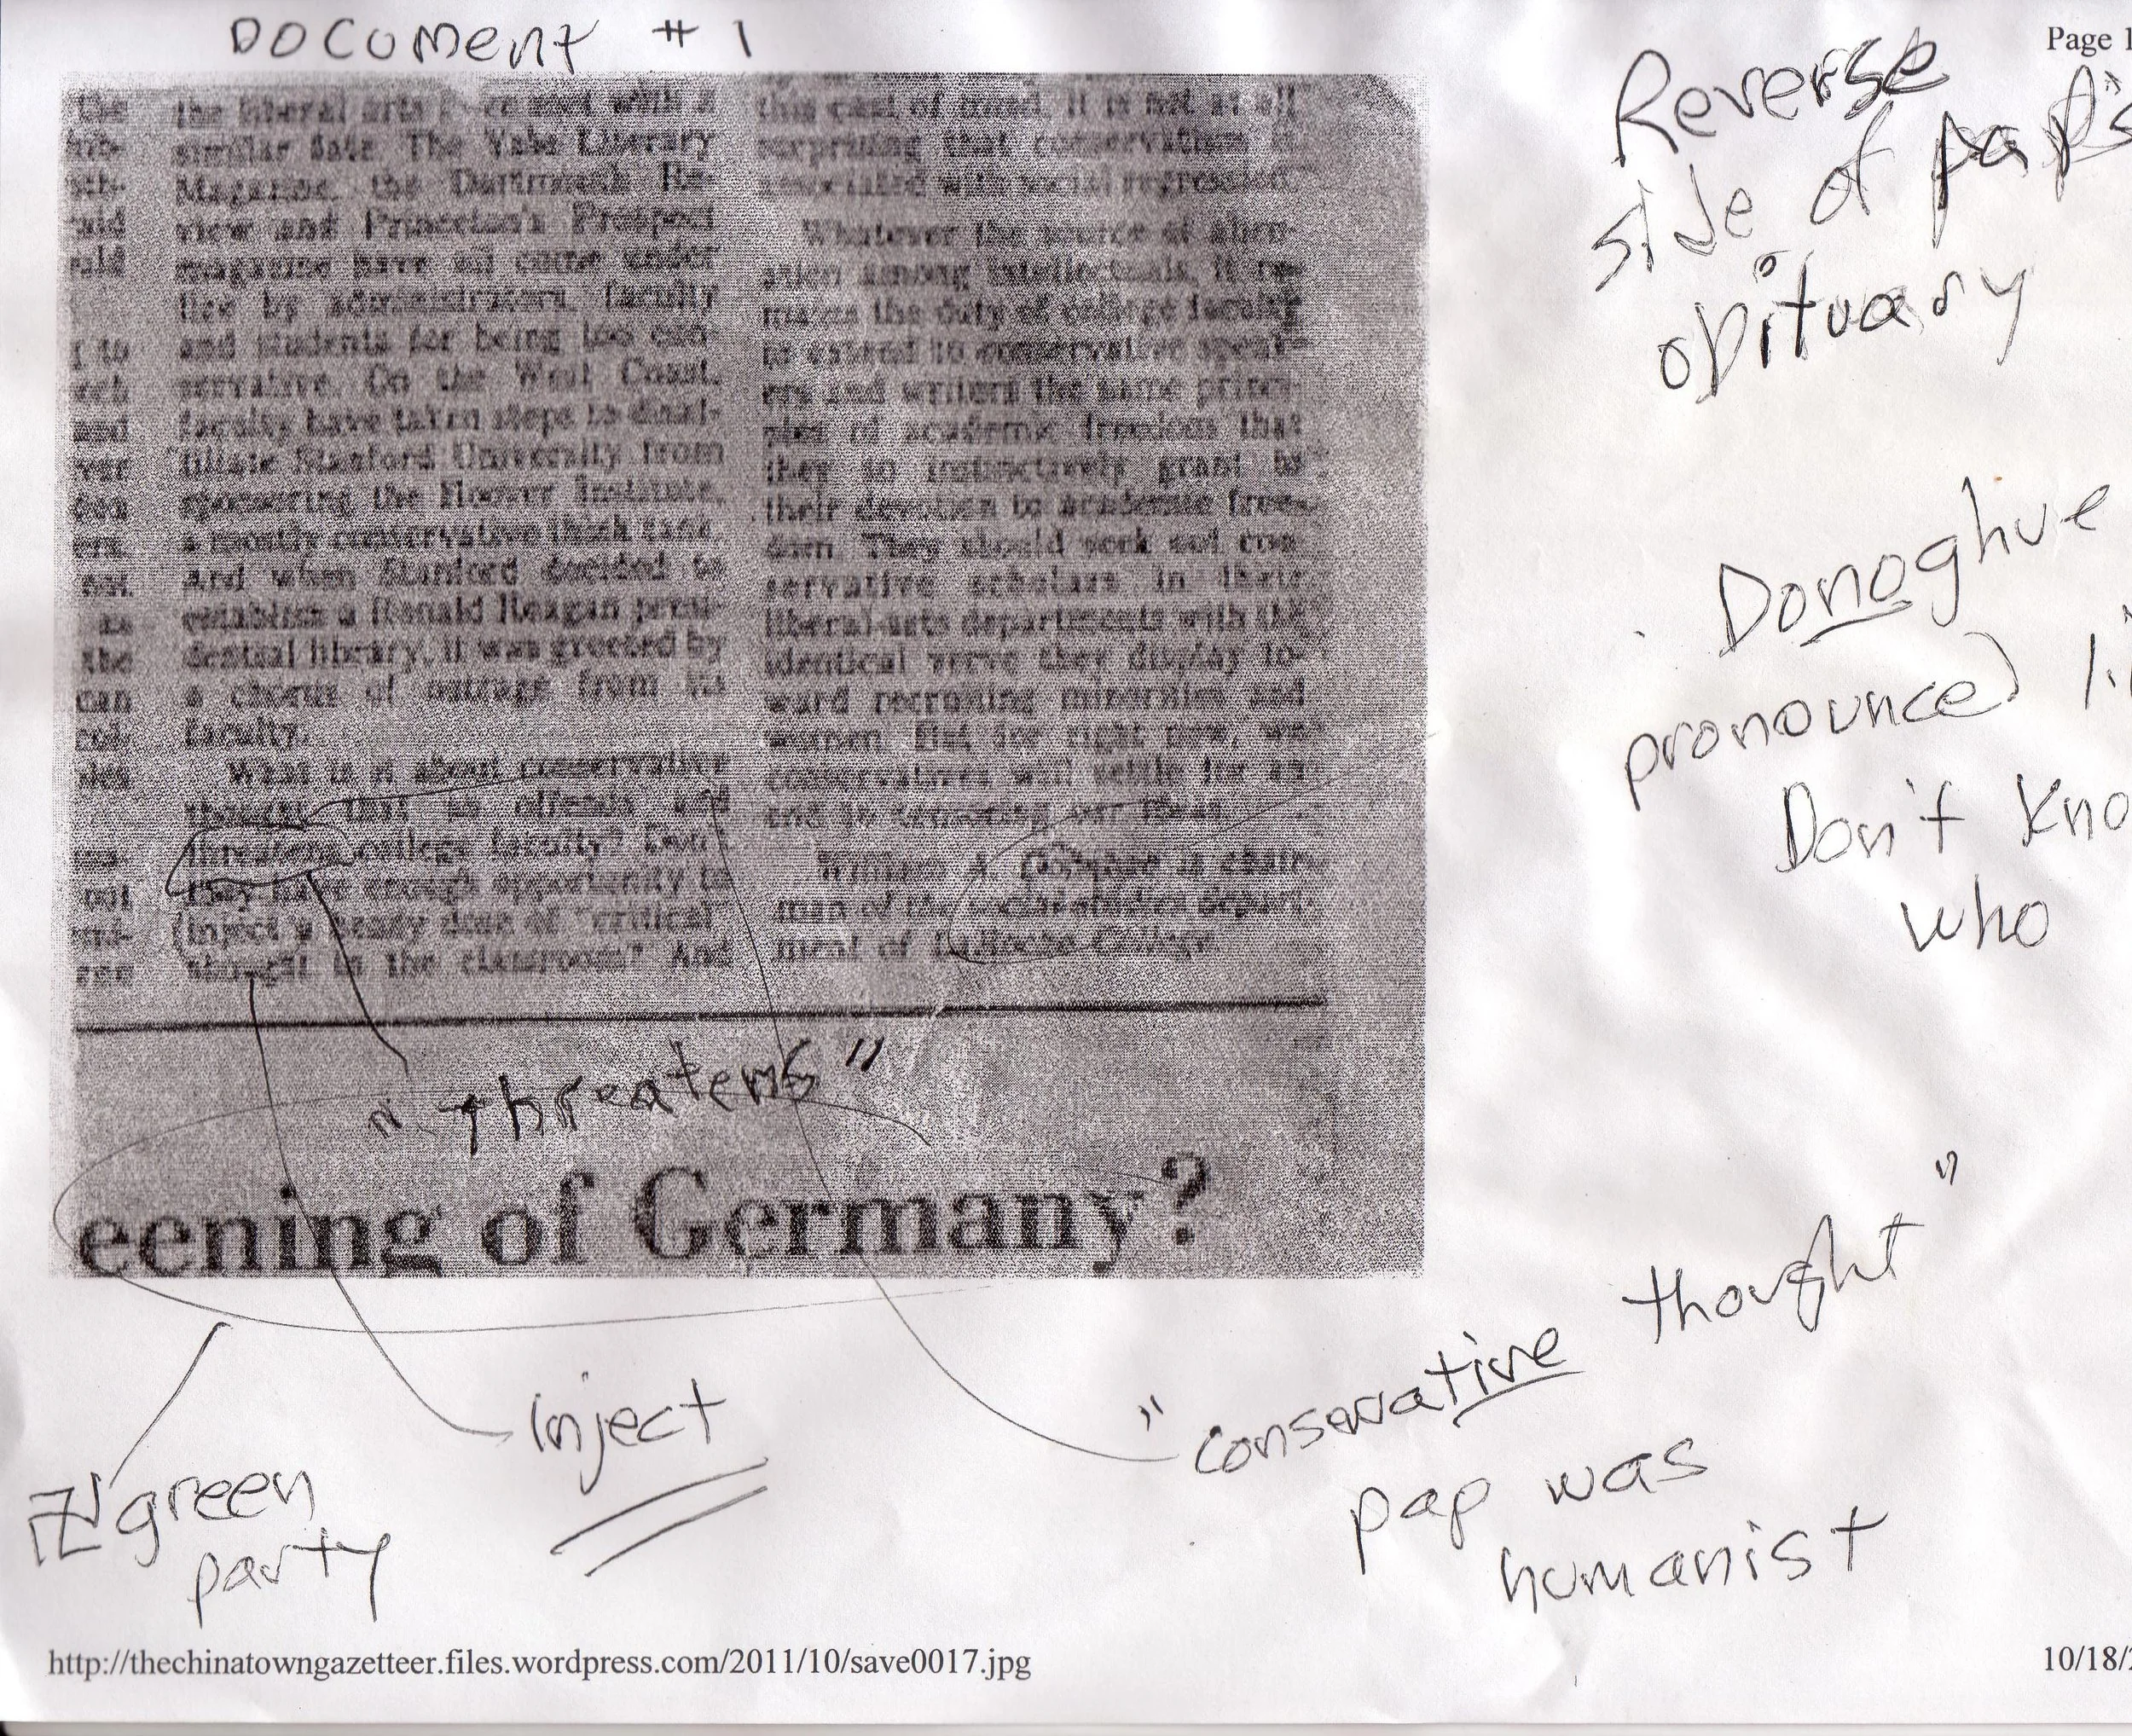 DOCUMENT # 1
Page 1
Reverse
side of pap's
obituary
Donoghue
pronounced li
Don't Kno
who
the
the liberal arts met with a
similar fate. The Yale Literary
Magazine, the Dartmouth Re-
view and Princeton's Prospect
magazine have all come under
fire by administrators, faculty
and students for being too con-
servative. On the West Coast,
faculty have taken steps to disaf-
filiate Stanford University from
sponsoring the Hoover Institute,
a mostly conservative think tank.
And when Stanford decided to
establish a Ronald Reagan presi-
dential library, it was greeted by
a chorus of outrage from its
faculty.
What is it about conservative
thought that so offends and
threatens college faculty? Don't
they have enough opportunity to
inject a heavy dose of "critical"
thought in the classroom? And
this cast of mind, it is not at all
surprising that conservatism is
associated with social repression.
Whatever the source of alien-
ation among intellectuals, it re-
mains the duty of college faculty
to extend to conservative speak-
ers and writers the same princi-
ples of academic freedom that
they so instinctively grant in
their devotion to academic free-
dom. They should seek out con-
servative scholars in their
liberal-arts departments with the
identical verve they display to-
ward recruiting minorities and
women. But for right now, we
conservatives will settle for an
end to censoring our ideas.
William A. Donohue is chair-
man of the social studies depart-
ment of La Roche College.
"threatens"
eening of Germany?
"conservative thought"
pap was
humanist
inject
green
party
http://thechinatowngazetteer.files.wordpress.com/2011/10/save0017.jpg
10/18/2